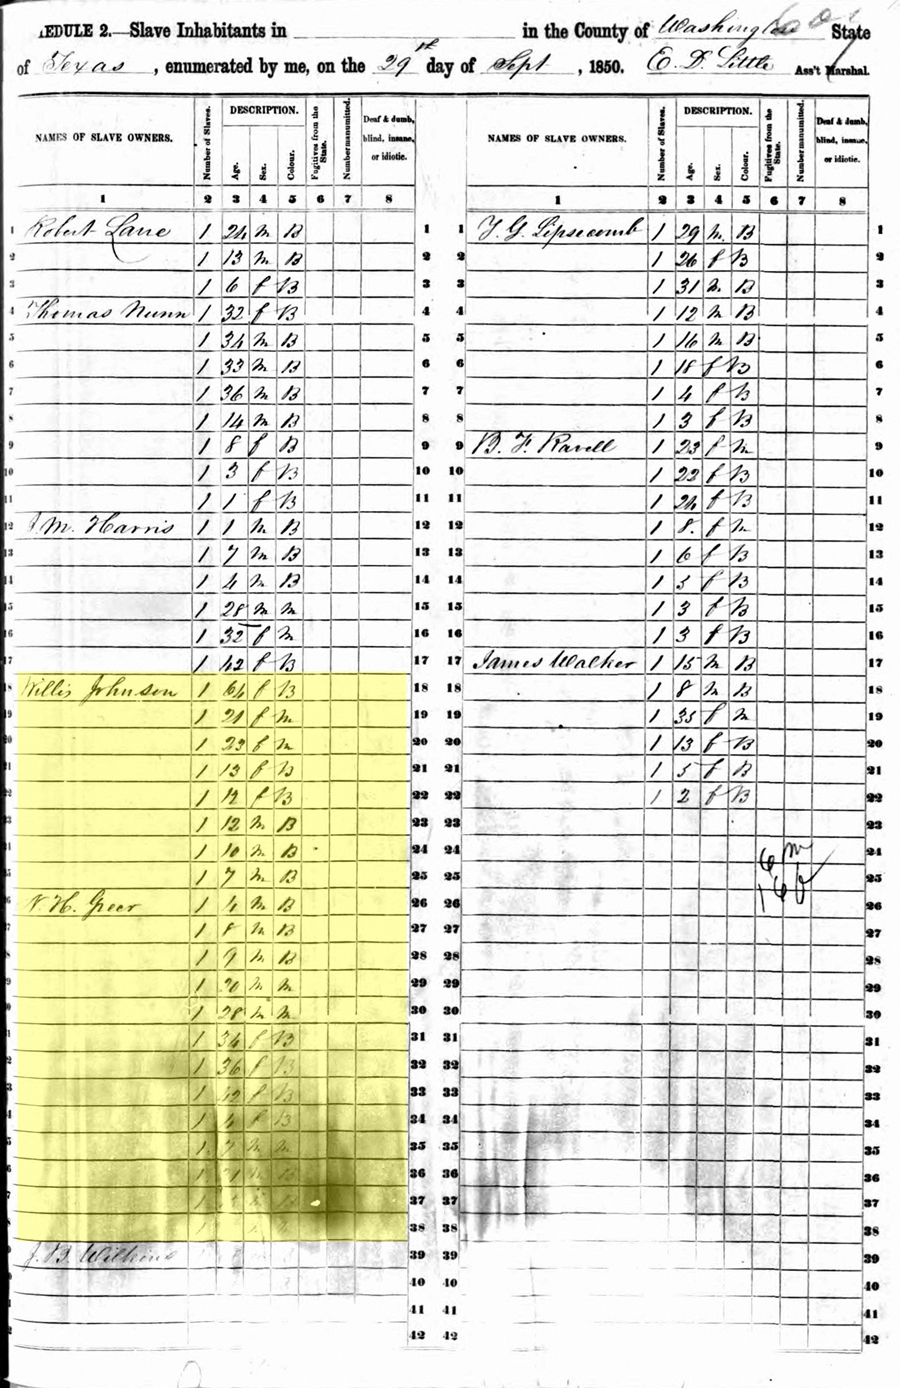 EDULE 2.—Slave Inhabitants in in the County of Washington State
of Texas, enumerated by me, on the 29th day of Sept, 1850. E. D. Little Ass't Marshal.
NAMES OF SLAVE OWNERS. Number of Slaves. DESCRIPTION. Age. Sex. Colour. Fugitives from the State. Number manumitted. Deaf & dumb, blind, insane, or idiotic. NAMES OF SLAVE OWNERS. Number of Slaves. DESCRIPTION. Age. Sex. Colour. Fugitives from the State. Number manumitted. Deaf & dumb, blind, insane, or idiotic.
1 2 3 4 5 6 7 8 1 2 3 4 5 6 7 8
1 Robert Lane 1 24 m B 1 1 T. G. Lipscomb 1 29 m B 1
2 1 13 m B 2 2 1 26 f B 2
3 1 6 f B 3 3 1 31 m B 3
4 Thomas Nunn 1 32 f B 4 4 1 12 m B 4
5 1 34 m B 5 5 1 16 m B 5
6 1 33 m B 6 6 1 18 f B 6
7 1 36 m B 7 7 1 4 f B 7
8 1 14 m B 8 8 1 3 f B 8
9 1 8 f B 9 9 B. F. Ravell 1 23 f m 9
10 1 3 f B 10 10 1 22 f B 10
11 1 1 f B 11 11 1 24 f B 11
12 J. M. Harris 1 1 m B 12 12 1 8 f m 12
13 1 7 m B 13 13 1 6 f B 13
14 1 4 m B 14 14 1 5 f B 14
15 1 28 m m 15 15 1 3 f B 15
16 1 32 f m 16 16 1 3 f B 16
17 1 42 f B 17 17 James Walker 1 15 m B 17
18 Willis Johnson 1 64 f B 18 18 1 8 m B 18
19 1 21 f m 19 19 1 35 f m 19
20 1 23 f m 20 20 1 13 f B 20
21 1 13 f B 21 21 1 5 f B 21
22 1 12 f B 22 22 1 2 f B 22
1 12 m B 23 23 23
1 10 m B 24 24 6 m 24
1 7 m B 25 25 25
N. H. Greer 1 4 m B 26 26 16 26
1 8 m B 27 27 27
1 9 m B 28 28 28
1 20 m m 29 29 29
1 28 m m 30 30 30
1 34 f B 31 31 31
1 36 f B 32 32 32
1 42 f B 33 33 33
1 4 f B 34 34 34
1 7 m m 35 35 35
1 36 36 36
37 37 37
38 38 38
J. B. Wilkins 39 39 39
40 40 40
41 41 41
42 42 42